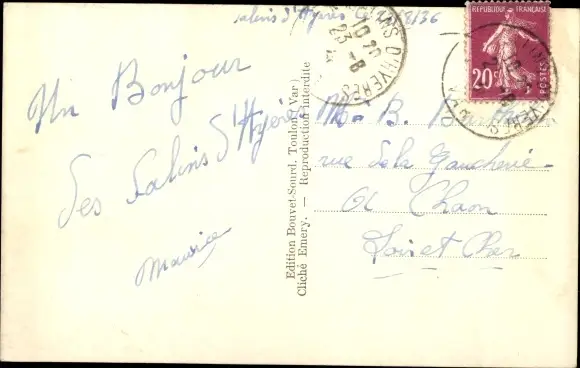 Salins d'Hyères
Un Bonjour
des Salins d'Hyères
Maurice
Edition Bouvet-Sourd, Toulon (Var)
Cliché Emery. — Reproduction interdite
SALINS D'HYERES
10 20
23 -8
REPUBLIQUE FRANÇAISE
20c
POSTES
rue de la Gaucherie
Loir et Cher